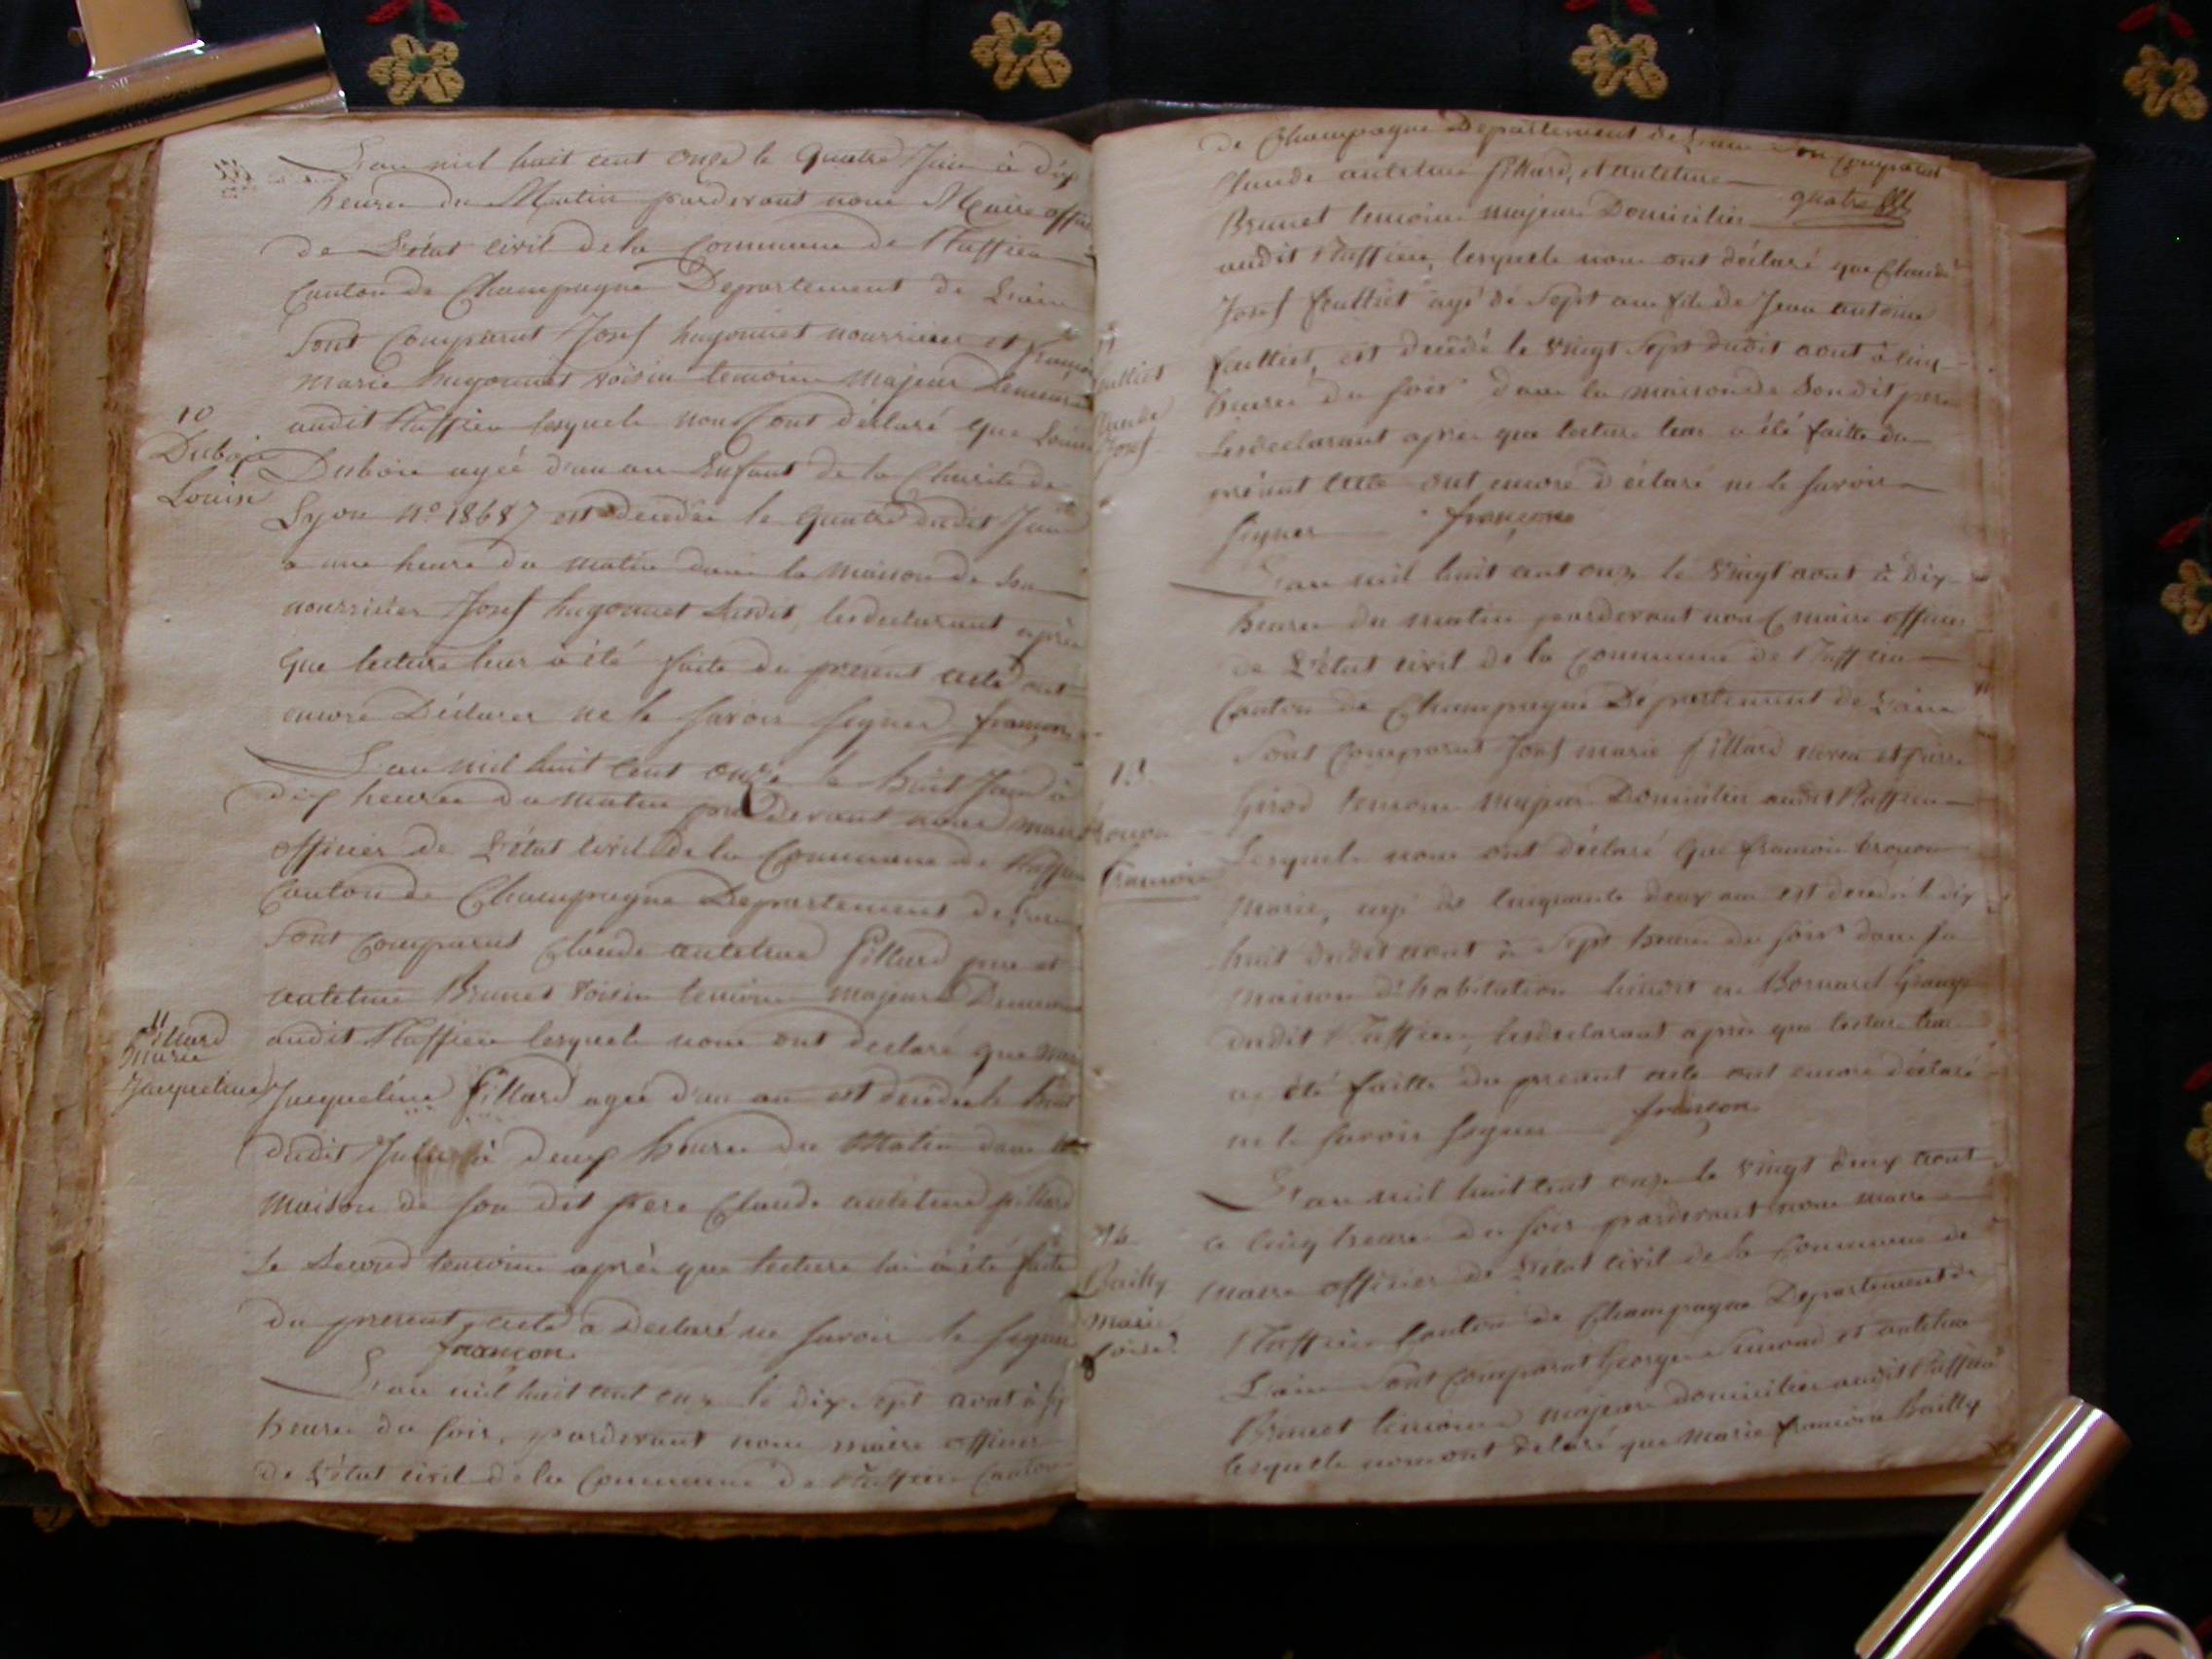 L'an mil huit cent onze le quatre Juin à dix
heures du Matin pardevant nous Maire offici
de L'état civil de la Commune de Ruffieu
Canton de Champagne Departement de Lain
Sont Comparut Josef hugonnet nourricier et françois
marie hugonnet voisin temoins majeur Demeurant
audit Ruffieu lesquels nous ont déclaré que Louise
10
Dubois
Louise
Dubois agée d'un an Enfant de la Charité de
Lyon No 18687 est décédée le quatre dudit Juin
a une heure du matin dans la maison de Son
nourricier Josef hugonnet Susdit, les declarant après
que lecture leur à été faite du présent acte ont
encore Déclarer ne le savoir signer françon
L'an mil huit cent onze le huit Juin à
dix heures du matin pardevant nous maire
officier de L'état civil de la Commune de Ruffieu
Canton de Champagne Departement de Lain
Sont Comparut Claude antelme pillard pere et
antelme Brunet voisin temoins majeurs Demeurant
11
Pillard
marie
Jacqueline
audit Ruffieu lesquels nous ont declaré que marie
Jacqueline pillard agée d'un an est decedée le huit
dudit à deux heures du Matin dans la
maison de son dit pere Claude antelme pillard
le Second temoins après que lecture lui à été faite
du present acte a Declaré ne savoir le signer
françon
L'an mil huit cent onze le dix Sept aout à six
heures du soir, pardevant nous maire officier
de L'état civil de la Commune de Ruffieu Canton
de Champagne Departement de Lain Son Comparut
Claude antelme pillard, et antelme
quatre
Brunet temoins majeurs Domiciliés
audit Ruffieu, lesquels nous ont déclaré que Claude
Josef feulliet agé de Sept ans fils de Jean antoine
feulliet, est decédé le Vingt Sept dudit aout à cinq
feulliet
Claude
Josef
heures du soir dans la maison de Son dit pere
Les declarant après que lecture leur a été faitte du
présent acte ont encore déclaré ne le savoir
signer françon
L'an mil huit cent onze le Vingt aout à dix
heures du matin pardevant nous maire officier
de L'état civil de la Commune de Ruffieu
Canton de Champagne Département de Lain
Sont Comparut Josef marie pillard neveu et pierre
13
Girod temoins majeurs Domiciliés audit Ruffieu
françois
Lesquels nous ont déclaré que françois
marie, agé de Cinquante deux ans est decedé le dix
huit dudit aout à Sept heures du soir dans sa
maison d'habitation
dudit Ruffieu, les declarant après que lecture leur
a été faitte du present acte ont encore déclaré
ne le savoir signer françon
L'an mil huit cent onze le vingt deux aout
a cinq heures du soir pardevant nous maire
14
Bailly
marie
maire officier de L'état civil de la Commune de
Ruffieu Canton de Champagne Departement de
Lain Sont Comparut George et antelme
Brunet temoins majeurs domiciliés audit Ruffieu
lesquels nous ont declaré que marie françoise Bailly